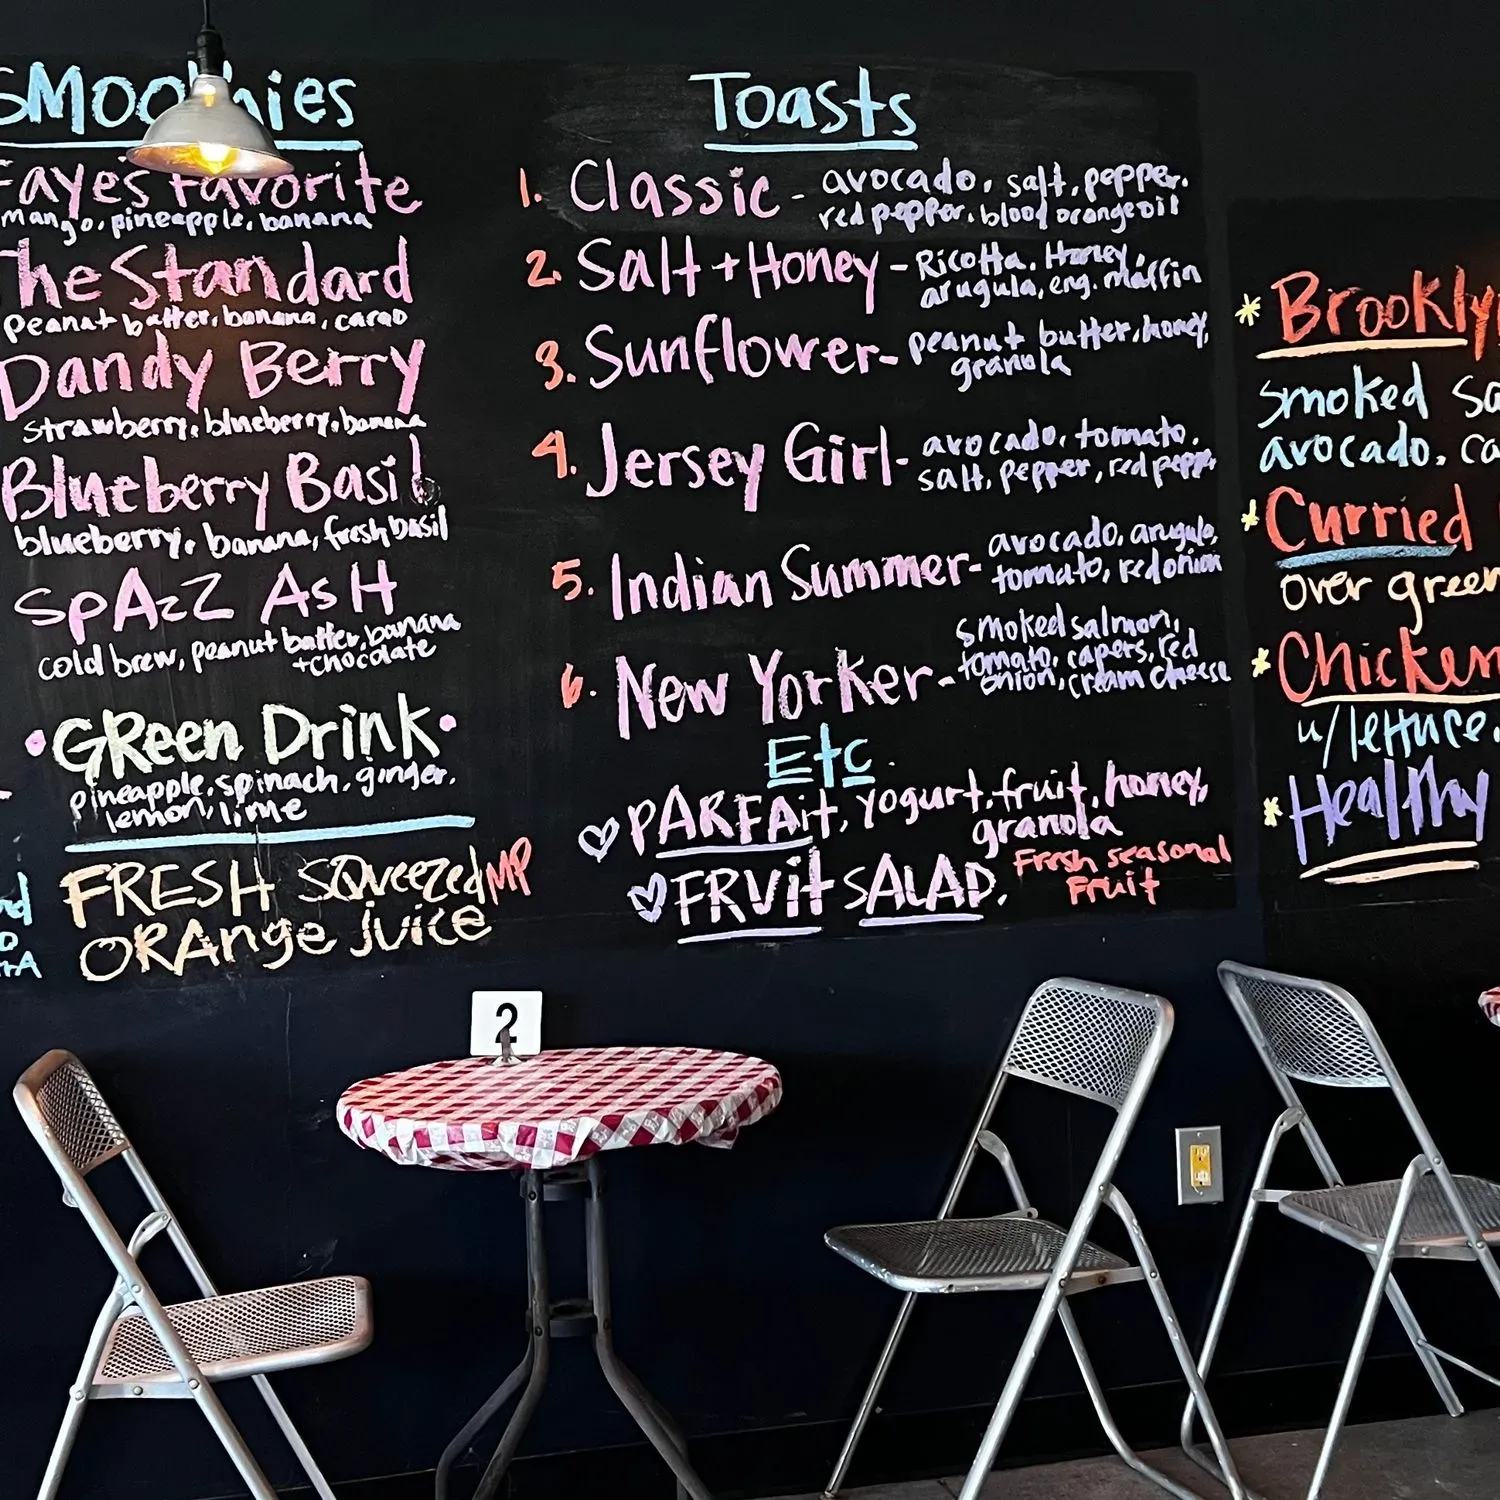 Smoothies
Faye's Favorite
mango, pineapple, banana
The Standard
peanut butter, banana, cacao
Dandy Berry
strawberry, blueberry, banana
Blueberry Basil
blueberry, banana, fresh basil
SpAzZ AsH
cold brew, peanut butter, banana
+chocolate
GReen Drink
pineapple, spinach, ginger,
lemon, lime
FRESH SQueezed MP
ORAnge juice
Toasts
1. Classic - avocado, salt, pepper,
red pepper, blood orange oil
2. Salt + Honey - Ricotta, Honey,
arugula, eng. muffin
3. Sunflower - peanut butter, honey,
granola
4. Jersey Girl - avocado, tomato,
salt, pepper, red pepper
5. Indian Summer - avocado, arugula,
tomato, red onion
6. New Yorker - smoked salmon,
tomato, capers, red
onion, cream cheese
Etc.
PARFAit, yogurt, fruit, honey,
granola
FRUit SALAD. Fresh seasonal
Fruit
* Brookly
smoked sa
avocado, ca
* Curried
over green
* Chicken
w/lettuce,
* Healthy
2